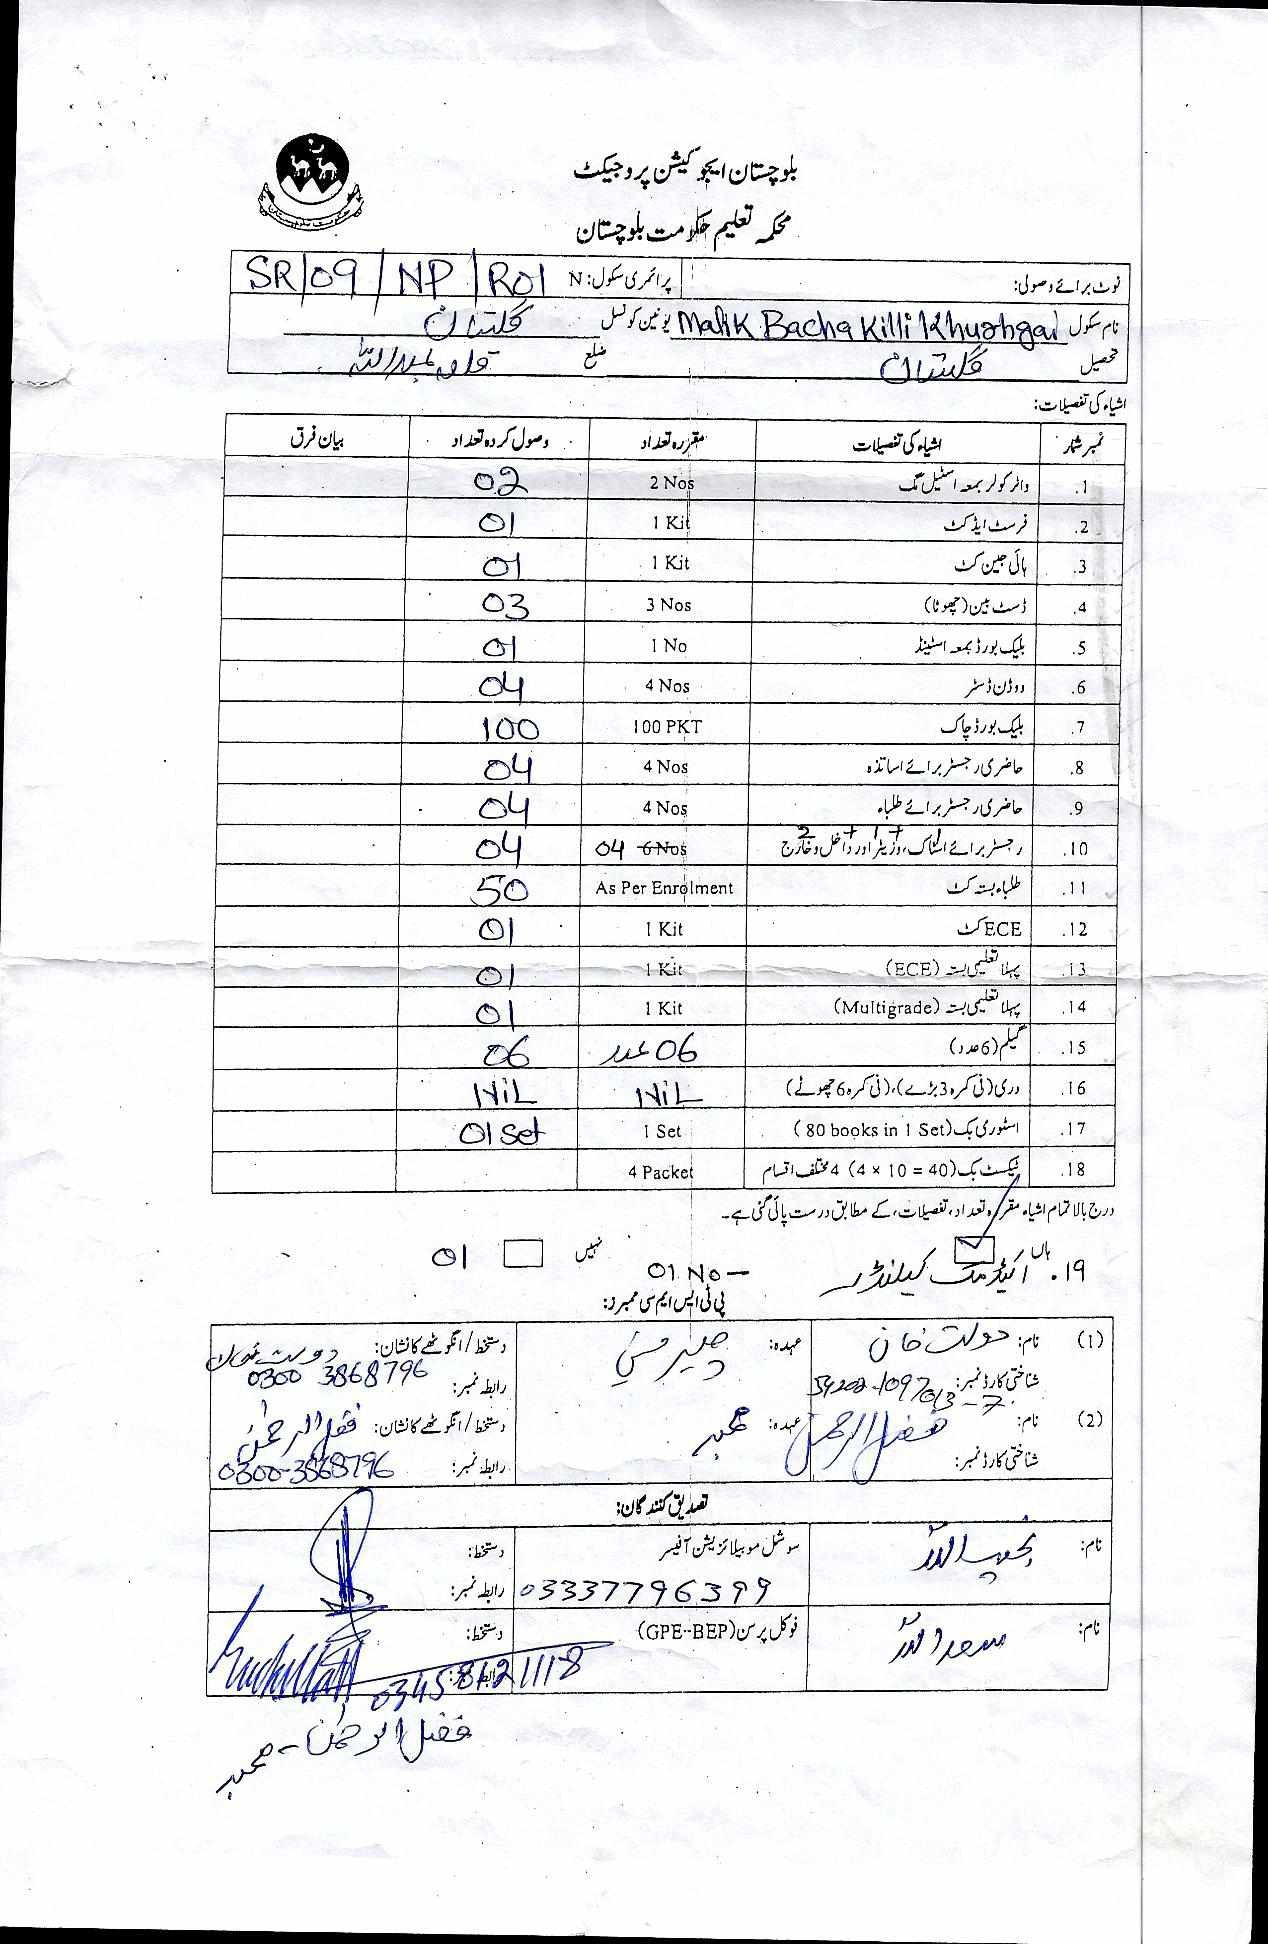 بلوچستان ایجوکیشن پروجیکٹ
محکمہ تعلیم حکومت بلوچستان
نوٹ برائے وصولی: پرائمری سکول: N SR/09/NP/R01
نام سکول Malik Bacha Killi Khushgai یونین کونسل گلستان
تحصیل گلستان ضلع قلعہ عبداللہ
اشیاء کی تفصیلات:
نمبر شمار اشیاء کی تفصیلات مقررہ تعداد وصول کردہ تعداد بیان فرق
1. واٹر کولر بمعہ اسٹیل مگ 2 Nos 02
2. فرسٹ ایڈ کٹ 1 Kit 01
3. ہائی جین کٹ 1 Kit 01
4. ڈسٹ بین (چھوٹا) 3 Nos 03
5. بلیک بورڈ بمعہ اسٹینڈ 1 No 01
6. ووڈن ڈسٹر 4 Nos 04
7. بلیک بورڈ چاک 100 PKT 100
8. حاضری رجسٹر برائے اساتذہ 4 Nos 04
9. حاضری رجسٹر برائے طلباء 4 Nos 04
2 + 1 + 1
10. رجسٹر برائے اسٹاک، وزیٹر اور داخل و خارج 6 Nos 04 04
11. طلباء بستہ کٹ As Per Enrolment 50
12. ECE کٹ 1 Kit 01
13. پہلا تعلیمی بستہ (ECE) 1 Kit 01
14. پہلا تعلیمی بستہ (Multigrade) 1 Kit 01
15. گلیم (6 عدد) 06 عدد 06
16. دری (فی کمرہ 3 بڑے)، (فی کمرہ 6 چھوٹے) Nil Nil
17. اسٹوری بک (80 books in 1 Set) 1 Set 01 Set
18. ٹیکسٹ بک (4 × 10 = 40) 4 مختلف اقسام 4 Packet
درج بالا تمام اشیاء مقررہ تعداد، تفصیلات، کے مطابق درست پائی گئی ہے۔
ہاں نہیں
19. اکیڈمک کیلنڈر 01 No 01
پی ٹی ایس ایم سی ممبرز:
(1) نام: دولت خان عہدہ: چیئرمین دستخط / انگوٹھے کا نشان:
شناختی کارڈ نمبر: رابطہ نمبر: 0300 3868796
(2) نام: فضل الرحمٰن عہدہ: ممبر دستخط / انگوٹھے کا نشان: فضل الرحمٰن
شناختی کارڈ نمبر: رابطہ نمبر: 0300-3868796
تصدیق کنندگان:
نام: نجیب اللہ سوشل موبیلائزیشن آفیسر دستخط:
03337796399 رابطہ نمبر:
نام: سعد اللہ فوکل پرسن (GPE-BEP) دستخط:
رابطہ نمبر: 03458121118
فضل الرحمٰن - ممبر